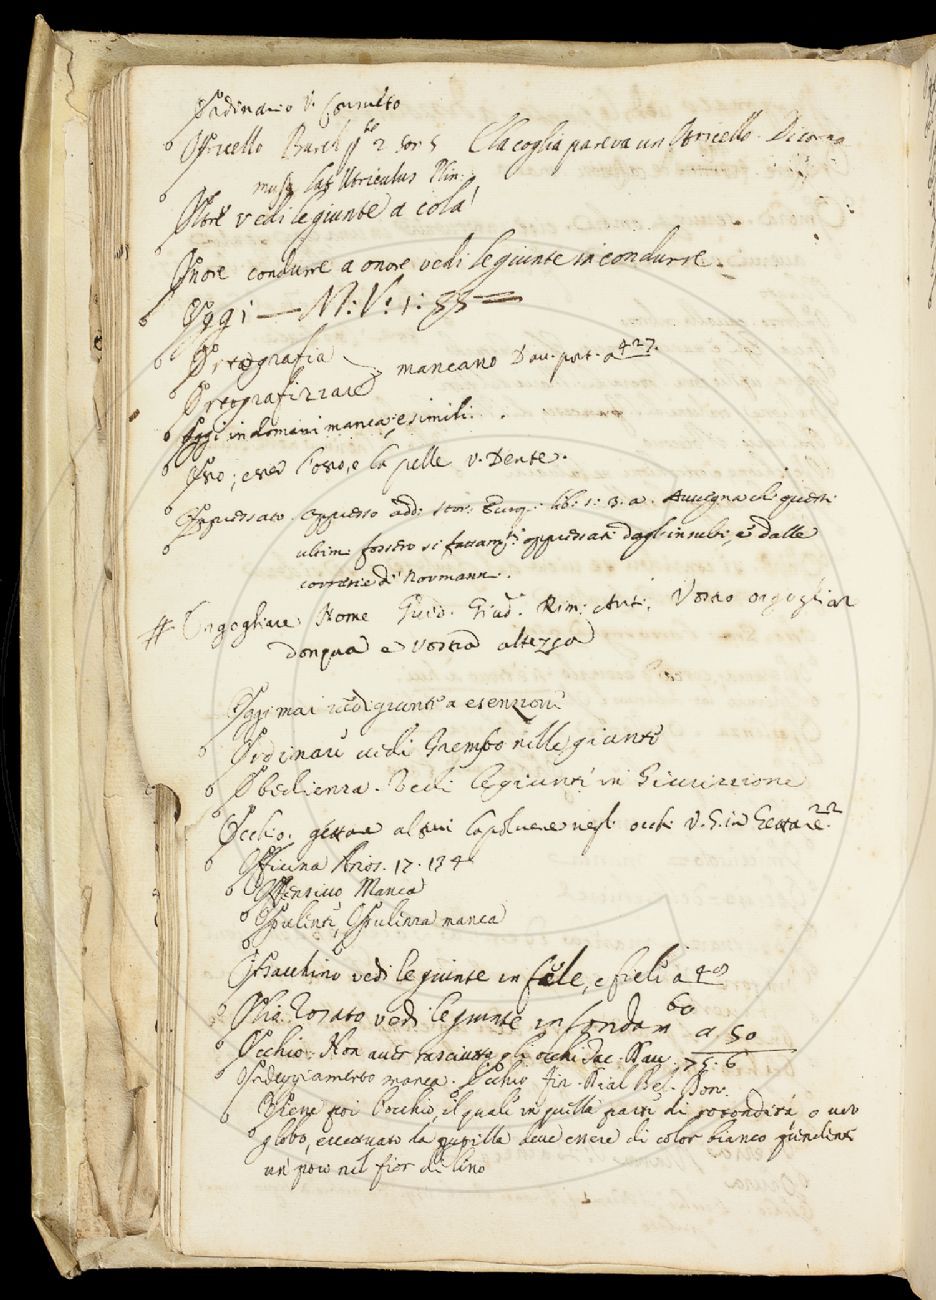 Ordinario V. Consulto
Otricello Burch. pte 2 son 5 E la coglia pareva un Otricello. Di corna
musa Lat. Utriculus Plin.
Oltre vedi le giunte a colà
Onore condurre a onore vedi le giunte in condurre.
Oggi — M: V. 1: 55 =
Ortografia
Ortografizzare mancano Dav. post. a 427.
Oggi in domani manca e simili.
Osso; esser l'osso, e la pelle v. Dente.
Oppressato. oppresso add: Stor. Europ. lib. 1: 3. a. Avvegna che questi
ultimi fossero sì fattam.te oppressati dagl'insubri, e dalle
correrie di Normanni.
# Orgogliare Nome Guid. Giud. Rim: Ant. Vostro orgogliar
donqua e vostra altezza
Oggimai vedi giunte a esenzione
Ordinare vedi Grembo nelle giunte
Obbedienza. Vedi le giunte in Giurizzione
Occhio. gettare altrui la polvere negli occhi V. G. in Gettare 22
Officina Arios. 17. 134
Offensivo Manca
Opulente, Opulenza manca
Otracchino vedi le giunte in fele, e fieli a 40
Olia Rosato vedi le giunte in fondam 60
a. 50
Occhio. Non aver rasciutti gli occhi Sac. Nov. 75. 6
Ondeggiamento manca. Occhio Fir. Dial. Bel. Don.
Viene poi l'occhio, il quale in quella parte di rotondità o ver
globo, eccettuato la pupilla deve essere di color bianco pendente
un poco nel fior di lino